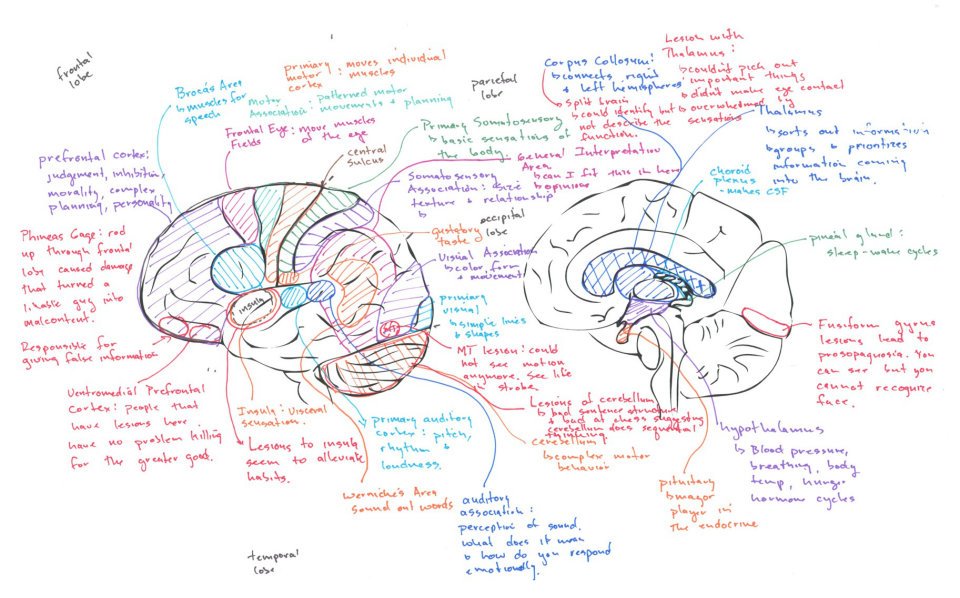 frontal
lobe
Broca's Area
↳ muscles for
speech
primiary : moves individual
motor muscles
cortex
Motor : patterned motor
Association : movements + planning
Frontal Eye : move muscles
Fields of the eye
central
sulcus
parietal
lobe
Primary Somatosensory
↳ basic sensations of
the body.
Somatosensory
Association : size
texture + relationship
↳
General Interpretation
Area
↳ can I fit this in here
↳ opinions
occipital
lobe
gustatory
taste
Visual Association
↳ color, form
+ movement
primiary
visual
↳ simple lines
+ shapes
MT lesion : could
not see motion
anymore. See life
in strobe.
prefrontal cortex :
judgment, inhibition,
morality, complex
planning, personality
Phineas Gage : rod
up through frontal
lobe caused damage
that turned a
likable guy into
malcontent.
Responsible for
giving false information
Ventromedial Prefrontal
Cortex : people that
have lesions here
have no problem killing
for the greater good.
insula
Insula : visceral
sensations.
Lesions to insula
seem to alleviate
habits.
MT
primary auditory
cortex : pitch,
rhythm +
loudness.
Wernicke's Area
sound out words
auditory
association :
perception of sound.
what does it mean
↳ how do you respond
emotionally.
temporal
lobe
Lesions of cerebellum
↳ bad sentence structure
+ bad at chess suggesting
cerebellum does sequential
thinking.
cerebellum
↳ complex motor
behavior
Corpus Collosum :
↳ connects right
+ left hemispheres
split brain
↳ could identify but
not describe the
function.
Lesion with
Thalamus :
↳ couldn't pick out
important things
↳ didn't make eye contact
↳ overwhelmed by
sensations
Thalamus
↳ sorts out information
↳ groups + prioritizes
information coming
into the brain.
choroid
plexus
- makes CSF
pineal gland :
sleep-wake cycles
Fusiform gyrus
lesions lead to
prosopagnosia. You
can see but you
cannot recognize
face.
hypothalamus
↳ Blood pressure,
breathing, body
temp, hunger
hormone cycles
pituitary
↳ major
player in
the endocrine